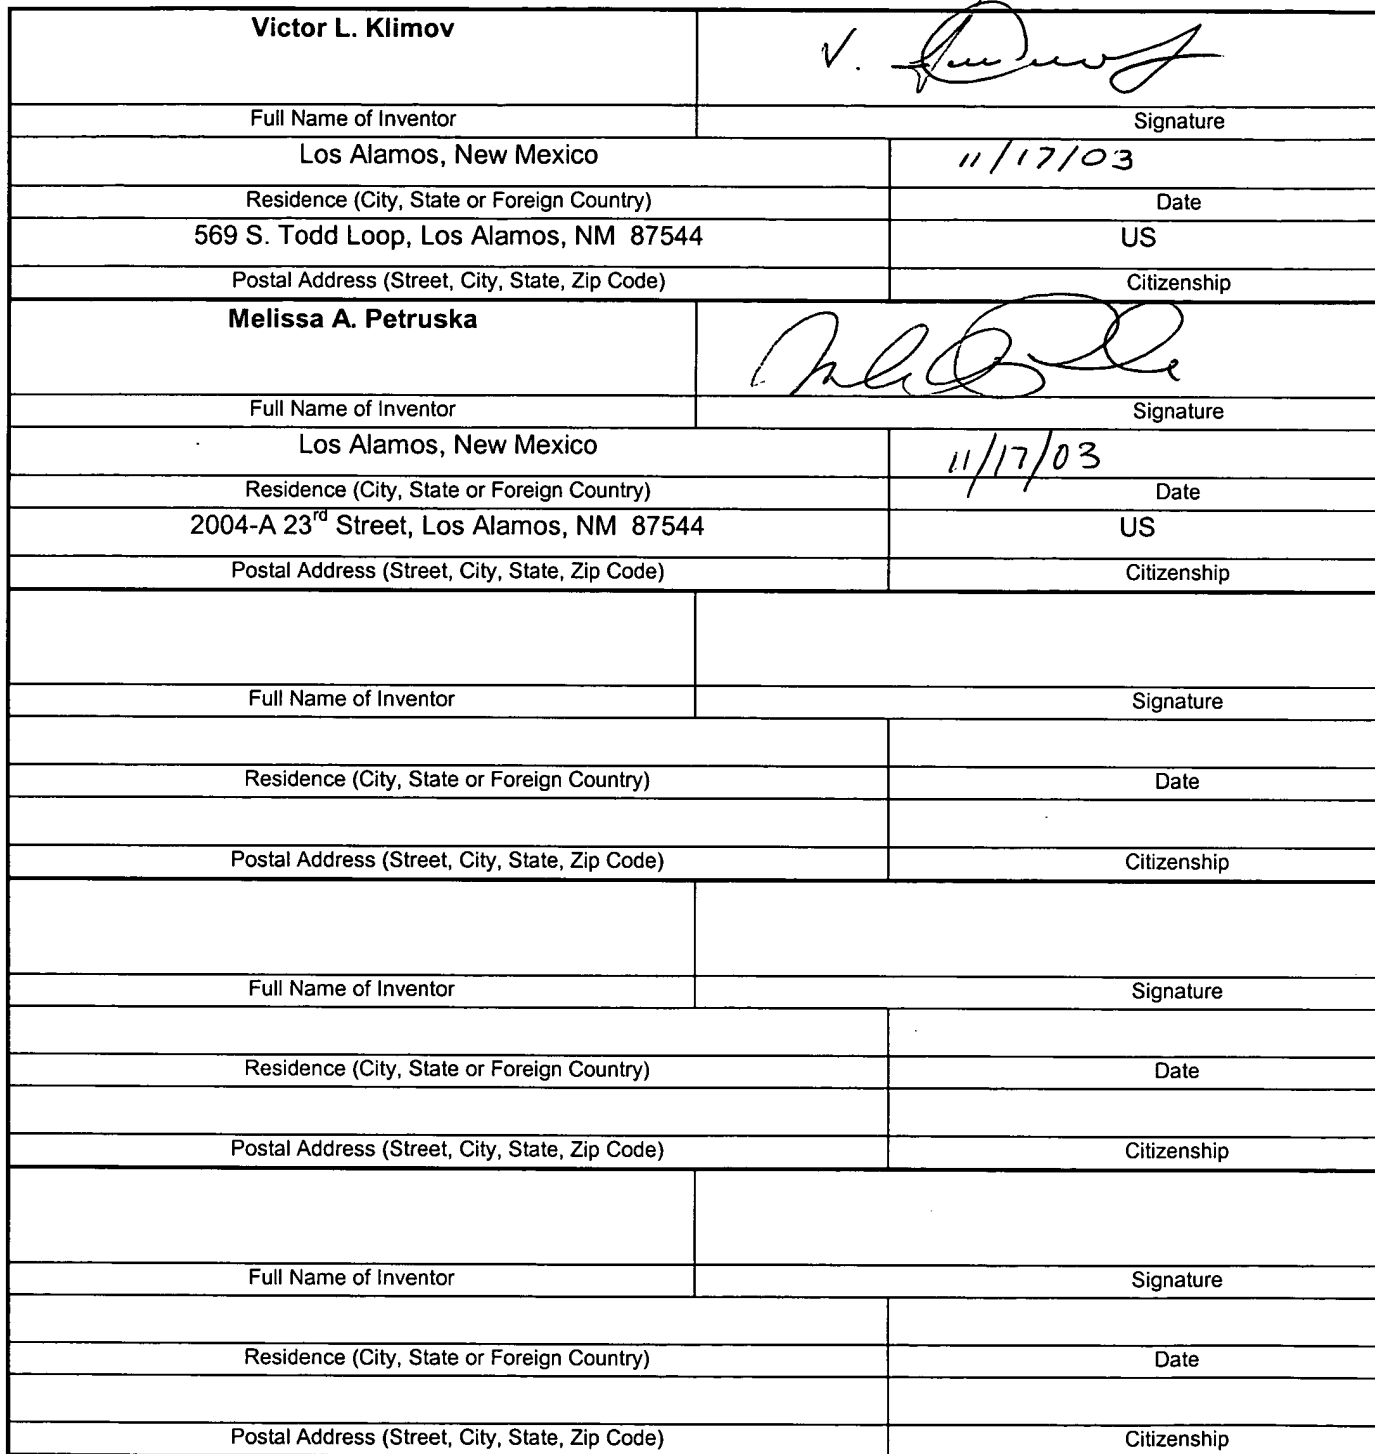 Victor L. Klimov
V.
Full Name of Inventor Signature
Los Alamos, New Mexico 11/17/03
Residence (City, State or Foreign Country) Date
569 S. Todd Loop, Los Alamos, NM 87544 US
Postal Address (Street, City, State, Zip Code) Citizenship
Melissa A. Petruska
Full Name of Inventor Signature
Los Alamos, New Mexico 11/17/03
Residence (City, State or Foreign Country) Date
2004-A 23rd Street, Los Alamos, NM 87544 US
Postal Address (Street, City, State, Zip Code) Citizenship
Full Name of Inventor Signature
Residence (City, State or Foreign Country) Date
Postal Address (Street, City, State, Zip Code) Citizenship
Full Name of Inventor Signature
Residence (City, State or Foreign Country) Date
Postal Address (Street, City, State, Zip Code) Citizenship
Full Name of Inventor Signature
Residence (City, State or Foreign Country) Date
Postal Address (Street, City, State, Zip Code) Citizenship